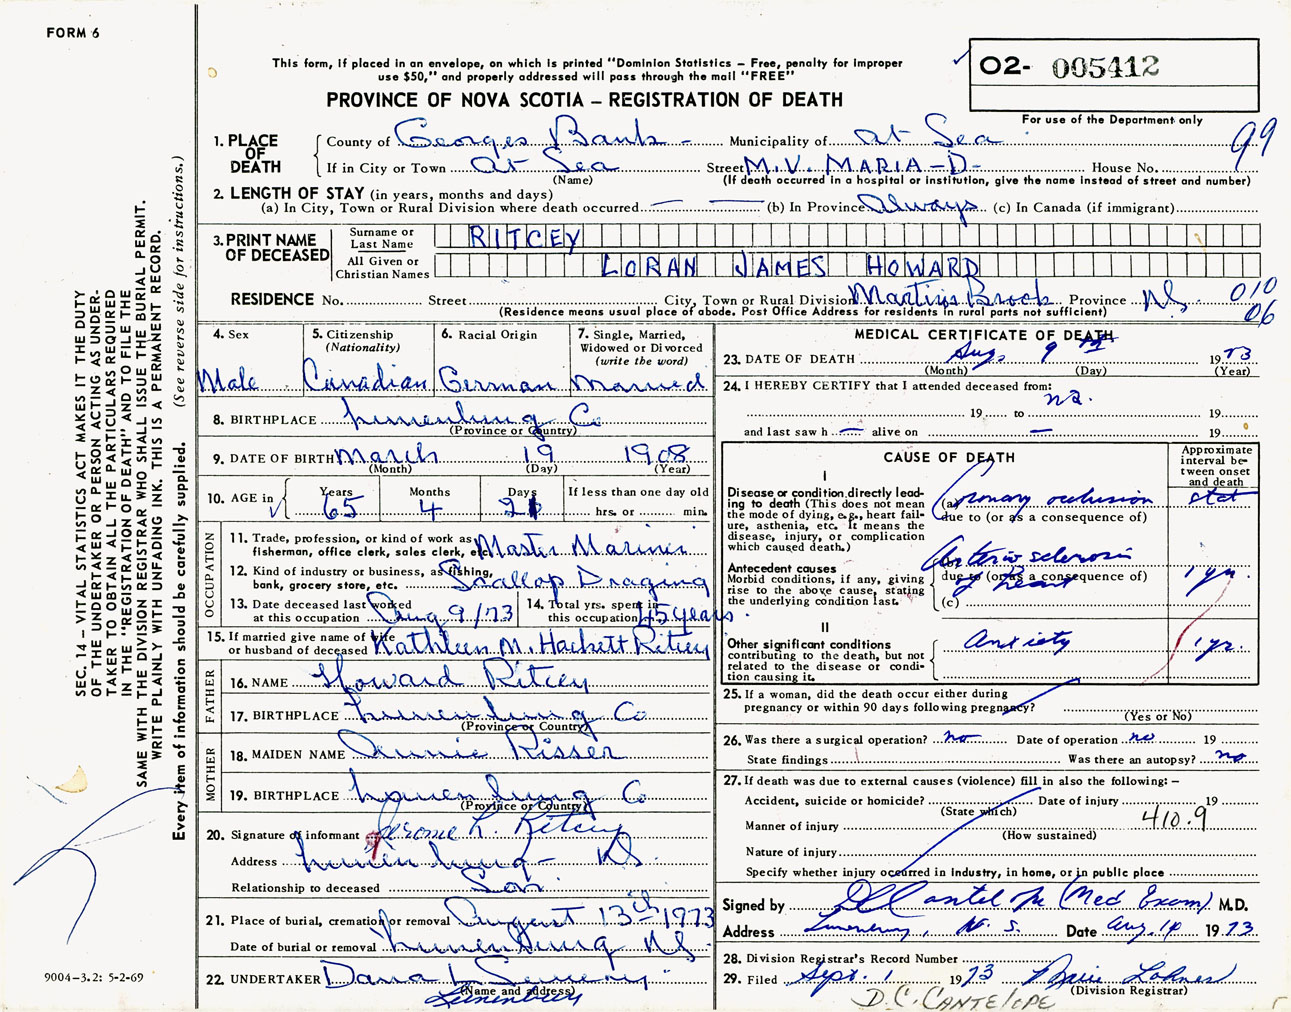 FORM 6
This form, if placed in an envelope, on which is printed "Dominion Statistics – Free, penalty for improper
use $50," and properly addressed will pass through the mail "FREE"
O2- 005412
For use of the Department only
PROVINCE OF NOVA SCOTIA – REGISTRATION OF DEATH
99
1. PLACE OF DEATH
County of Georges Bank - Municipality of at Sea
If in City or Town at Sea Street M.V. MARIA-D- House No.
(Name) (If death occurred in a hospital or institution, give the name instead of street and number)
2. LENGTH OF STAY (in years, months and days)
(a) In City, Town or Rural Division where death occurred — — (b) In Province Always (c) In Canada (if immigrant)
3. PRINT NAME OF DECEASED
Surname or Last Name RITCEY
All Given or Christian Names LORAN JAMES HOWARD
RESIDENCE No. Street City, Town or Rural Division Martins Brook Province NS. 010
06
(Residence means usual place of abode. Post Office Address for residents in rural parts not sufficient)
4. Sex Male
5. Citizenship (Nationality) Canadian
6. Racial Origin German
7. Single, Married, Widowed or Divorced (write the word) Married
8. BIRTHPLACE Lunenburg Co
(Province or Country)
9. DATE OF BIRTH March 19 1908
(Month) (Day) (Year)
10. AGE in Years 65 Months 4 Days 21 If less than one day old
hrs. or min.
OCCUPATION
11. Trade, profession, or kind of work as
fisherman, office clerk, sales clerk, etc. Master Mariner
12. Kind of industry or business, as fishing,
bank, grocery store, etc. Scallop Draging
13. Date deceased last worked
at this occupation Aug 9/73
14. Total yrs. spent in
this occupation 45 years.
15. If married give name of wife
or husband of deceased Kathleen M. Hackett Ritcey
FATHER
16. NAME Howard Ritcey
17. BIRTHPLACE Lunenburg Co
(Province or Country)
MOTHER
18. MAIDEN NAME Annie Risser
19. BIRTHPLACE Lunenburg Co
(Province or Country)
20. Signature of informant Jerome L. Ritcey
Address Lunenburg - NS.
Relationship to deceased Son
21. Place of burial, cremation or removal August 13th 1973
Date of burial or removal Lunenburg NS.
22. UNDERTAKER Dana L Sweeny
(Name and address)
Lunenburg
MEDICAL CERTIFICATE OF DEATH
23. DATE OF DEATH Aug. 9th 1973
(Month) (Day) (Year)
24. I HEREBY CERTIFY that I attended deceased from:
na.
19 to 19
and last saw h — alive on — 19
CAUSE OF DEATH
Approximate interval between onset and death
I
Disease or condition directly leading to death (This does not mean the mode of dying, e.g., heart failure, asthenia, etc. It means the disease, injury, or complication which caused death.)
(a) Coronary occlusion stat
due to (or as a consequence of)
Antecedent causes
Morbid conditions, if any, giving rise to the above cause, stating the underlying condition last.
Arteriosclerosis
due to (or as a consequence of)
of heart 1 yr.
(c)
II
Other significant conditions contributing to the death, but not related to the disease or condition causing it.
Anxiety 1 yr.
25. If a woman, did the death occur either during
pregnancy or within 90 days following pregnancy?
(Yes or No)
26. Was there a surgical operation? no Date of operation no 19
State findings Was there an autopsy? no
27. If death was due to external causes (violence) fill in also the following: –
Accident, suicide or homicide? Date of injury 19
(State which)
Manner of injury 410.9
(How sustained)
Nature of injury
Specify whether injury occurred in industry, in home, or in public place
Signed by D C Cantelope (Med Exam) M.D.
Address Lunenburg, N. S. Date Aug. 14 1973
28. Division Registrar's Record Number
29. Filed Sept. 1 1973
(Division Registrar)
D.C. CANTELOPE
SEC. 14 – VITAL STATISTICS ACT MAKES IT THE DUTY
OF THE UNDERTAKER OR PERSON ACTING AS UNDER-
TAKER TO OBTAIN ALL THE PARTICULARS REQUIRED
IN THE "REGISTRATION OF DEATH" AND TO FILE THE
SAME WITH THE DIVISION REGISTRAR WHO SHALL ISSUE THE BURIAL PERMIT.
WRITE PLAINLY WITH UNFADING INK. THIS IS A PERMANENT RECORD.
Every item of information should be carefully supplied. (See reverse side for instructions.)
9004–3.2: 5-2-69